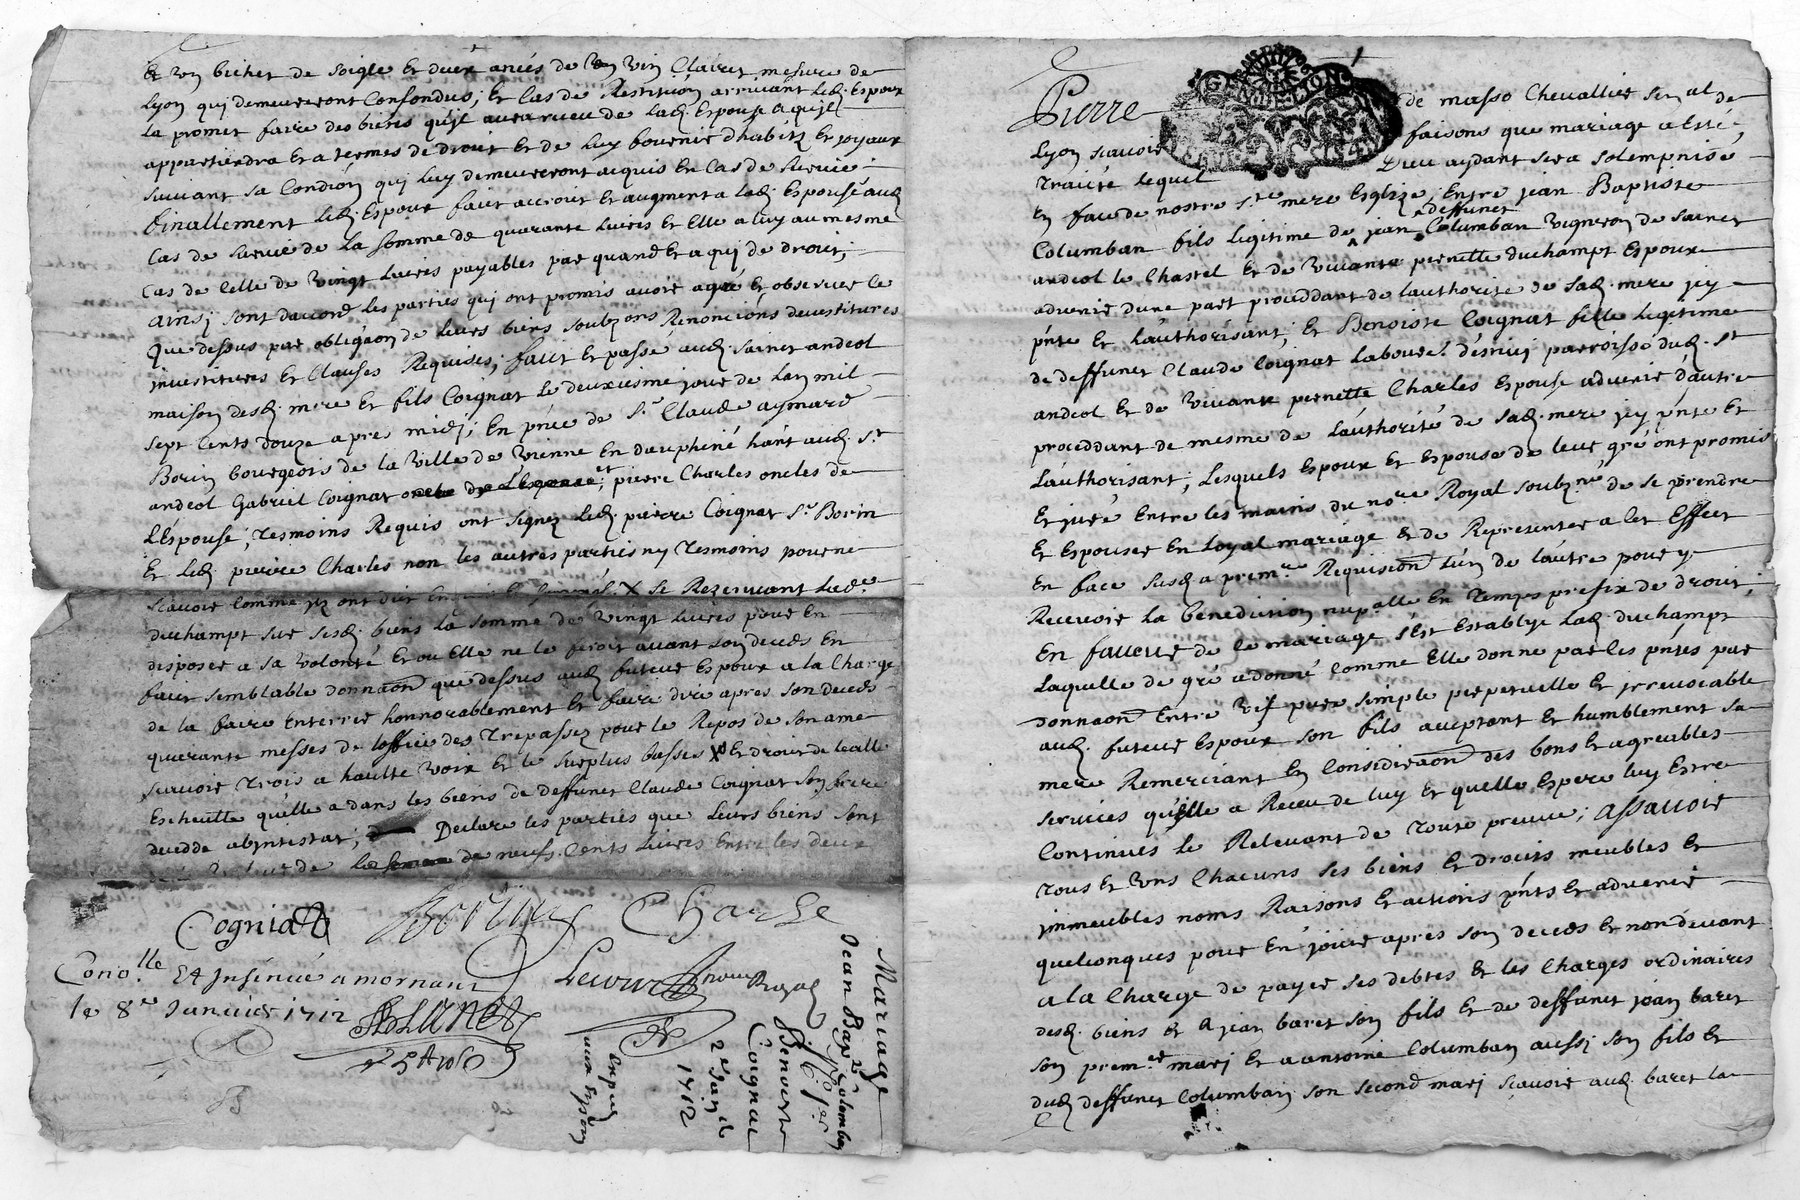 Et un bichet de soigle Et deux anées de vin Clairet mesure de
Lyon qui demeureront Confondus; Et Cas de Restitution arrivant Led. Espoux
La promet faire des biens qu'jl aura receu de Lad. Espouse a qu'jl
appartiendra Et a termes de droit Et de Luy fournir d'habitz Et joyaux
suivant sa Condion qui Luy demeureront acquis En Cas de survie
finallement Led. Espoux fait accroit Et augment a Lad. Espouse aud.
Cas de survie de La somme de quarante Livres Et Elle a luy au mesme
Cas de Celle de vingt Livres payables par quand Et a qui de droit;
Ainsi sont d'accord les parties qui ont promis avoir agré Et observer le
que dessus par obligaon de leurs biens soubz ons Renoncions devestitures
investitures Et Clauses Requises; fait Et passé aud. sainct andeol
maison desd. mere Et fils Coignat Le deuxiesme jour de Lan mil
sept Cents douze apres midi; En pnce de Sr. Claude aymard
Borin bourgeois de la ville de vienne En dauphiné hant aud. St.
andeol Gabriel Coignat et pierre Charles oncles de
L'Espouse; tesmoins Requis ont signez led. pierre Coignat Sr. Borin
Et led. pierre Charles non les autres parties ny tesmoins pour ne
scavoir Comme jlz ont dit X se Rezervant Lad.
duchampt sur sesd. biens La somme de vingt Livres pour En
disposer a sa volonté Et ou Elle ne le feroit avant son deces En
fait semblable donnaon que dessus aud. futeur Espoux a la Charge
de la faire Enterrer honnorablement Et faire dire apres son deces
quarante messes de l'office des trepassez pour le Repos de son ame
scavoir trois a haulte voix Et le surplus basses X Et droit de Calle
Escheutte qu'elle a dans les biens de deffunct Claude Coignat son frere
decedde abjntestat; Declare les parties que Leurs biens sont
de neufs Cents Livres Entre les deux
Cogniat Borin Charle
Conolle. Et Insinué a mornant
le 8e Janvier 1712
nore Royal
Mariage
Jean Bap Columban
Benoiste
Coignat
2e Jan
1712
Pierre de masso Chevallier Senal de
Lyon scavoir faisons que mariage a Esté
traicté lequel Dieu aydant sera solempnisé
En face de nostre ste mere Esglize; Entre jean Baptiste
deffunct
Columban fils legitime de jean Columban vigneron de sainct
andeol le Chastel Et de vivante pernette duchampt Espoux
advenir d'une part proceddant de l'authorite de sad. mere jcy
pnte Et L'authorisant; Et Benoiste Coignat fille legitime
de deffunct Claude Coignat Laboure. parroisse dud. St
andeol Et de vivante pernette Charles Espouse advenir d'autre
proceddant de mesme de L'authorité de sad. mere jcy pnte Et
L'authorisant; Lesquels Espoux Et Espouse de leur gré ont promis
Et juré Entre les mains du nore Royal soubzné de se prendre
Et Espouser En loyal mariage Et de Representer a Cet Effect
En face susd. a premre Requision L'un de L'autre pour y
Recevoir La benediction nupalle En temps prefix de droict;
En faveur de Ce mariage s'Est Establye Lad. duchampt
Laquelle de gré a donné Comme Elle donne par les pntes par
donnaon Entre vif pure simple perpetuelle Et jrrevocable
aud. futeur Espoux son fils acceptant Et humblement sa
mere Remerciant En Consideraon des bons Et agreables
services qu'Elle a Receu de luy Et quelle Espere luy Estre
Continues le Relevant de toute preuve; Assavoir
tous Et uns Chacuns ses biens Et droits meubles Et
jmmeubles noms Raisons Et actions pnts Et advenir
quelconques pour En joüir apres son deces Et non devant
a la Charge de payer ses debtes Et les Charges ordinaires
desd. biens Et a jean baret son fils Et de deffunct jean baret
son premer mari Et a antoine Columban aussi son fils Et
dud. deffunct Columban son second mari scavoir aud. baret la